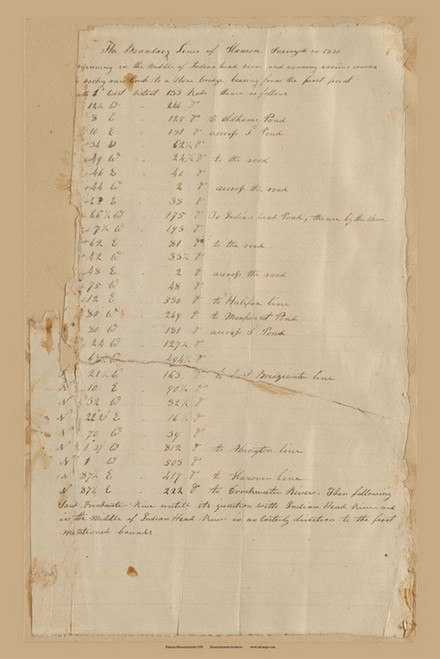 The Boundary Lines of Hanson Surveyed in 1830
Beginning in the Middle of Indian head river and running various courses
to a Stone bridge bearing from the first point
East distant 153 Rods thence as follows
12½ W - 266 D°
8 E - 125 D° to Oldhams Pond
10 E - 131 D° across S^d Pond
31 W - 62½ D°
49 W - 24½ D° to the road
46 E - 40 D°
44 W - 2 D° across the road
E - 38 D°
66½ W - 175 D° To Indian head Pond, thence by the shore
7½ W - 183 D°
62 E - 81 D° to the road
42 W - 33½ D°
48 E - 2 D° across the road
75 W - 48 D°
12 E - 530 D° to Halifax line
80 W - 269 D° to Monponset Pond
80 W - 131 D° across S^d Pond
24 W - 127½ D°
W - 494½ D°
21½ W - 163 D° to East Bridgewater line
N 10 E - 90½ D°
N 32 W - 32½ D°
N 22 E - 16½ D°
N 70 W - 39 D°
N W - 312 D° to Abington line
N W - 503 D°
N 37½ E - 417 D° to Hanover line
N 37½ E - 222 D° to Drinkwater River. Then following
Said Drinkwater River untill its junction with Indian Head River and
in the Middle of Indian Head River in an Easterly direction to the first
mentioned bounds
Hanson Massachusetts 1830 Massachusetts Archives www.old-maps.com